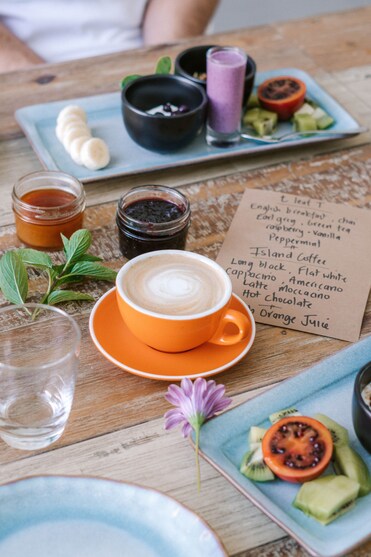 t leaf T
English breakfast, chai
Earl grey, Green tea
raspberry & Vanilla
Peppermint
Island Coffee
Long Black, Flat white
Cappucino, Americano
Latte, Moccacino
Hot Chocolate
Orange Juice